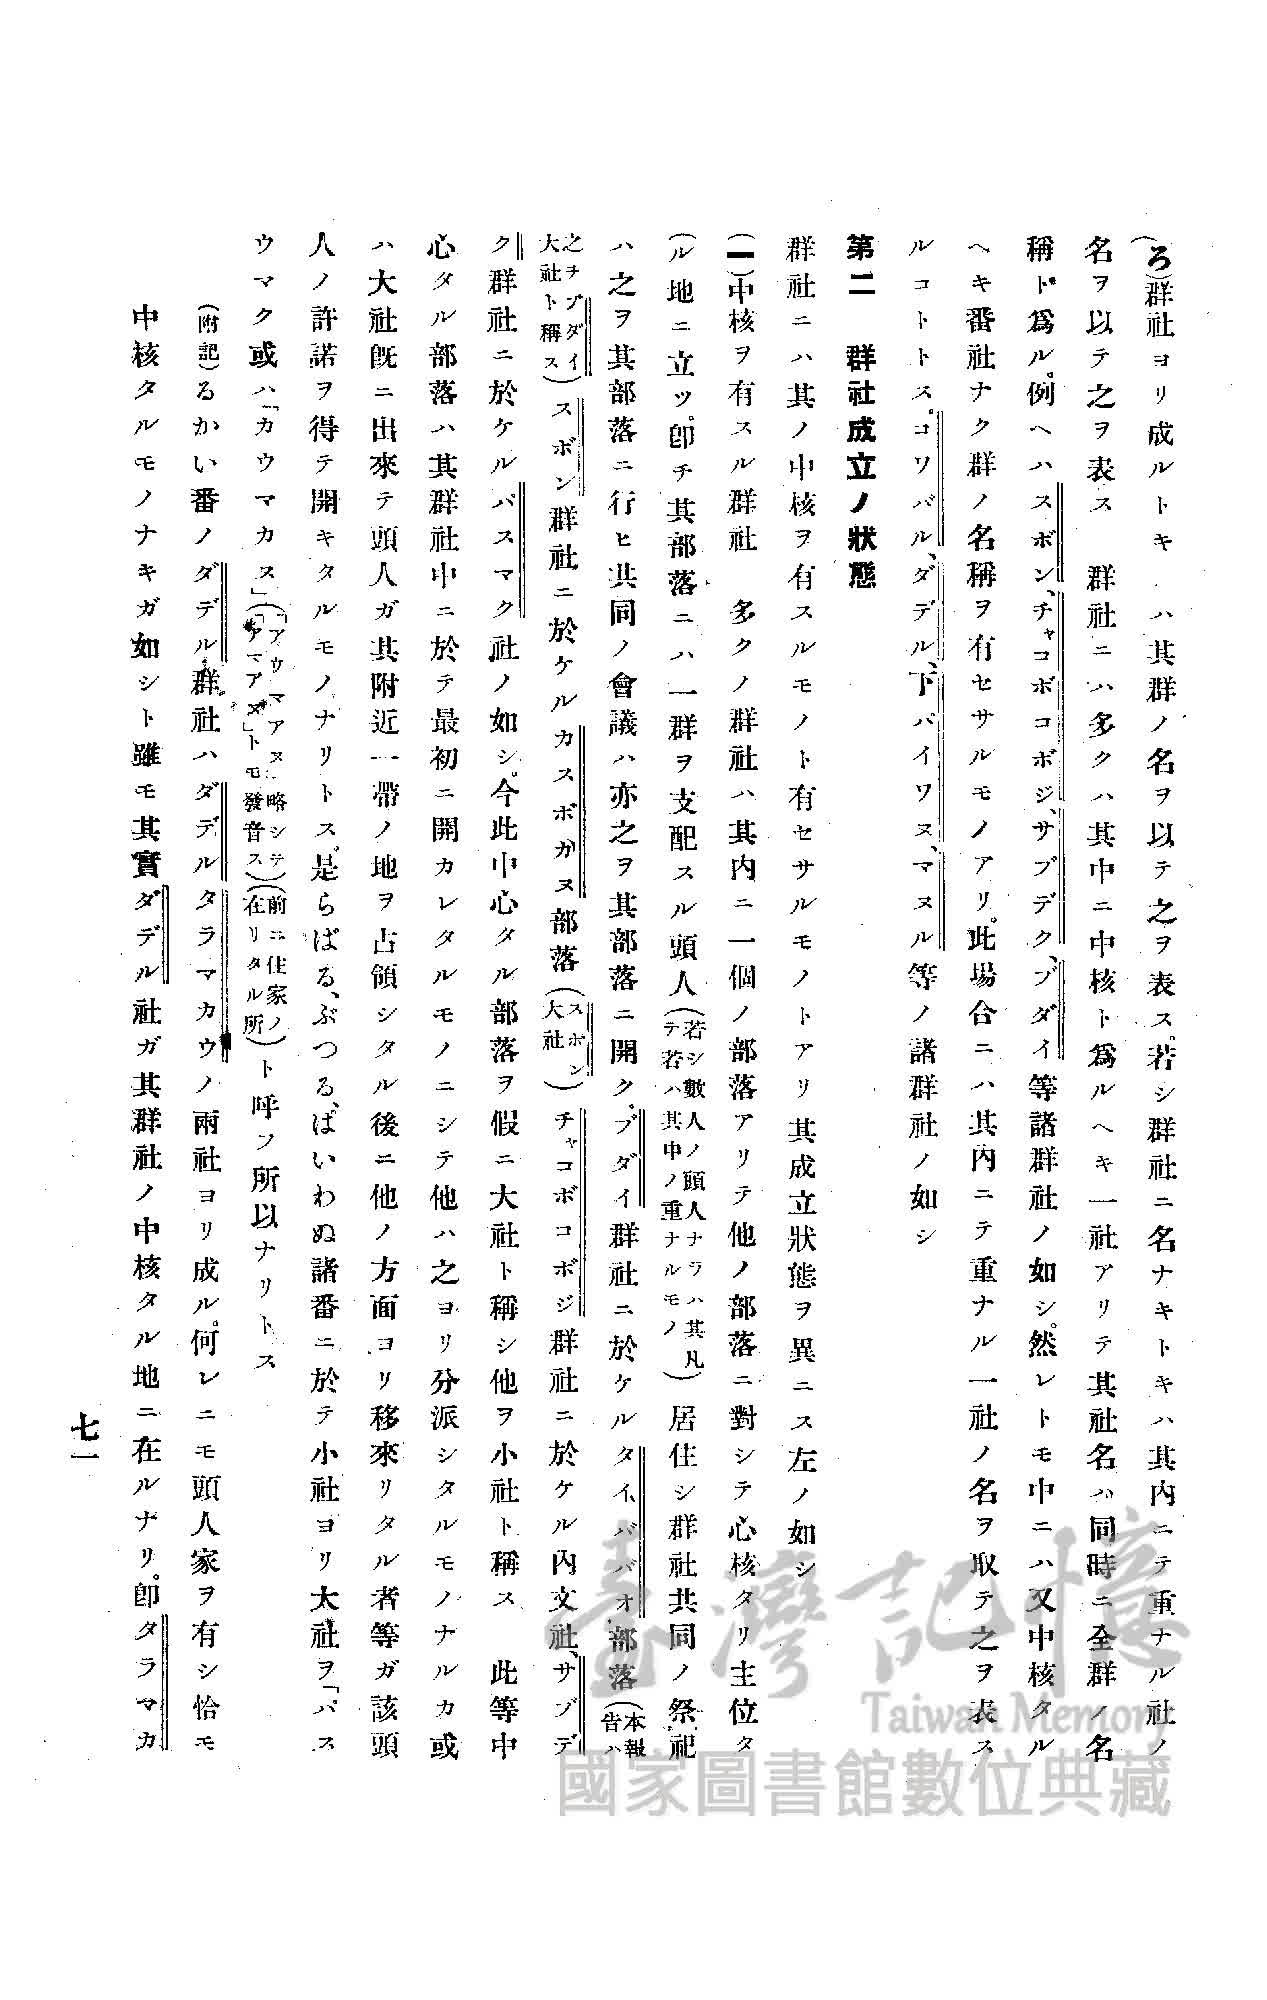 (ろ)群社ヨリ成ルトキ ハ其群ノ名ヲ以テ之ヲ表ス。若シ群社ニ名ナキトキハ其内ニテ重ナル社ノ
名ヲ以テ之ヲ表ス 群社ニハ多クハ其中ニ中核ト爲ルヘキ一社アリテ其社名ハ同時ニ全群ノ名
稱ト爲ル。例ヘハスボン、チャコボコボジ、サブデク、ブダイ等諸群社ノ如シ。然レトモ中ニハ又中核タル
ヘキ番社ナク群ノ名稱ヲ有セサルモノアリ。此場合ニハ其内ニテ重ナル一社ノ名ヲ取テ之ヲ表ス
ルコトトス。コワバル、ダデル、下バイワヌ、マヌル等ノ諸群社ノ如シ
第二 群社成立ノ狀態
群社ニハ其ノ中核ヲ有スルモノト有セサルモノトアリ其成立狀態ヲ異ニス左ノ如シ
(一)中核ヲ有スル群社 多クノ群社ハ其内ニ一個ノ部落アリテ他ノ部落ニ對シテ心核タリ主位タ
ル地ニ立ツ。卽チ其部落ニハ一群ヲ支配スル頭人(若シ數人ノ頭人ナラハ其凡テ若ハ其中ノ重ナルモノ)居住シ群社共同ノ祭祀
ハ之ヲ其部落ニ行ヒ共同ノ會議ハ亦之ヲ其部落ニ開ク。ブダイ群社ニ於ケルタイババオ部落(本報告ハ
之ヲブダイ大社ト稱ス)スボン群社ニ於ケルカスボガヌ部落(スボン大社)チャコボコボジ群社ニ於ケル内文社、サブデ
ク群社ニ於ケルバスマク社ノ如シ。今此中心タル部落ヲ假ニ大社ト稱シ他ヲ小社ト稱ス 此等中
心タル部落ハ其群社中ニ於テ最初ニ開カレタルモノニシテ他ハ之ヨリ分派シタルモノナルカ或
ハ大社旣ニ出來テ頭人ガ其附近一帶ノ地ヲ占領シタル後ニ他ノ方面ヨリ移來リタル者等ガ該頭
人ノ許諾ヲ得テ開キタルモノナリトス。是らばる、ぶつる、ぱいわぬ諸番ニ於テ小社ヨリ大社ヲ「バス
ウマク或ハ「カウマカス」(「アウマアヌ」略シテ「アマアヌ」トモ發音ス)(前ニ住家ノ在リタル所)ト呼フ所以ナリトス
(附記)るかい番ノダデル群社ハダデルタラマカウノ兩社ヨリ成ル。何レニモ頭人家ヲ有シ恰モ
中核タルモノナキガ如シト雖モ其實ダデル社ガ其群社ノ中核タル地ニ在ルナリ。卽タラマカ
七一
臺灣記憶
Taiwan Memory
國家圖書館數位典藏